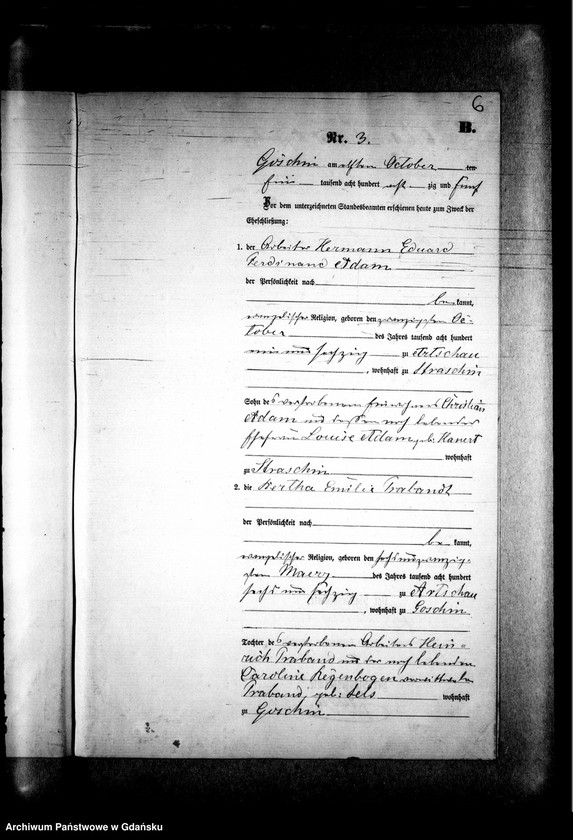 6
B.
Nr. 3.
Goschin am elften October ten
tausend acht hundert acht zig und fünf
Vor dem unterzeichneten Standesbeamten erschienen heute zum Zweck der
Eheschließung:
1. der Arbeiter Hermann Eduard
Ferdinand Adam
der Persönlichkeit nach
be kannt,
evangelischer Religion, geboren den zwanzigsten Oc-
tober des Jahres tausend acht hundert
neun und sechzig zu Artschau
, wohnhaft zu Straschin
Sohn des verstorbenen Christian
Adam und dessen noch lebender
Ehefrau Louise Adam geb. Hanert
wohnhaft
zu Straschin
2. die Bertha Emilie Trabandt
der Persönlichkeit nach
be kannt,
evangelischer Religion, geboren den sechsundzwanzig-
sten Maerz des Jahres tausend acht hundert
sechs und sechzig zu Artschau
, wohnhaft zu Goschin
Tochter des verstorbenen Arbeiters Hein-
rich Traband und der noch lebenden
Caroline Regenbogen verwittwete
Traband, geb. Sels wohnhaft
zu Goschin
Archiwum Państwowe w Gdańsku